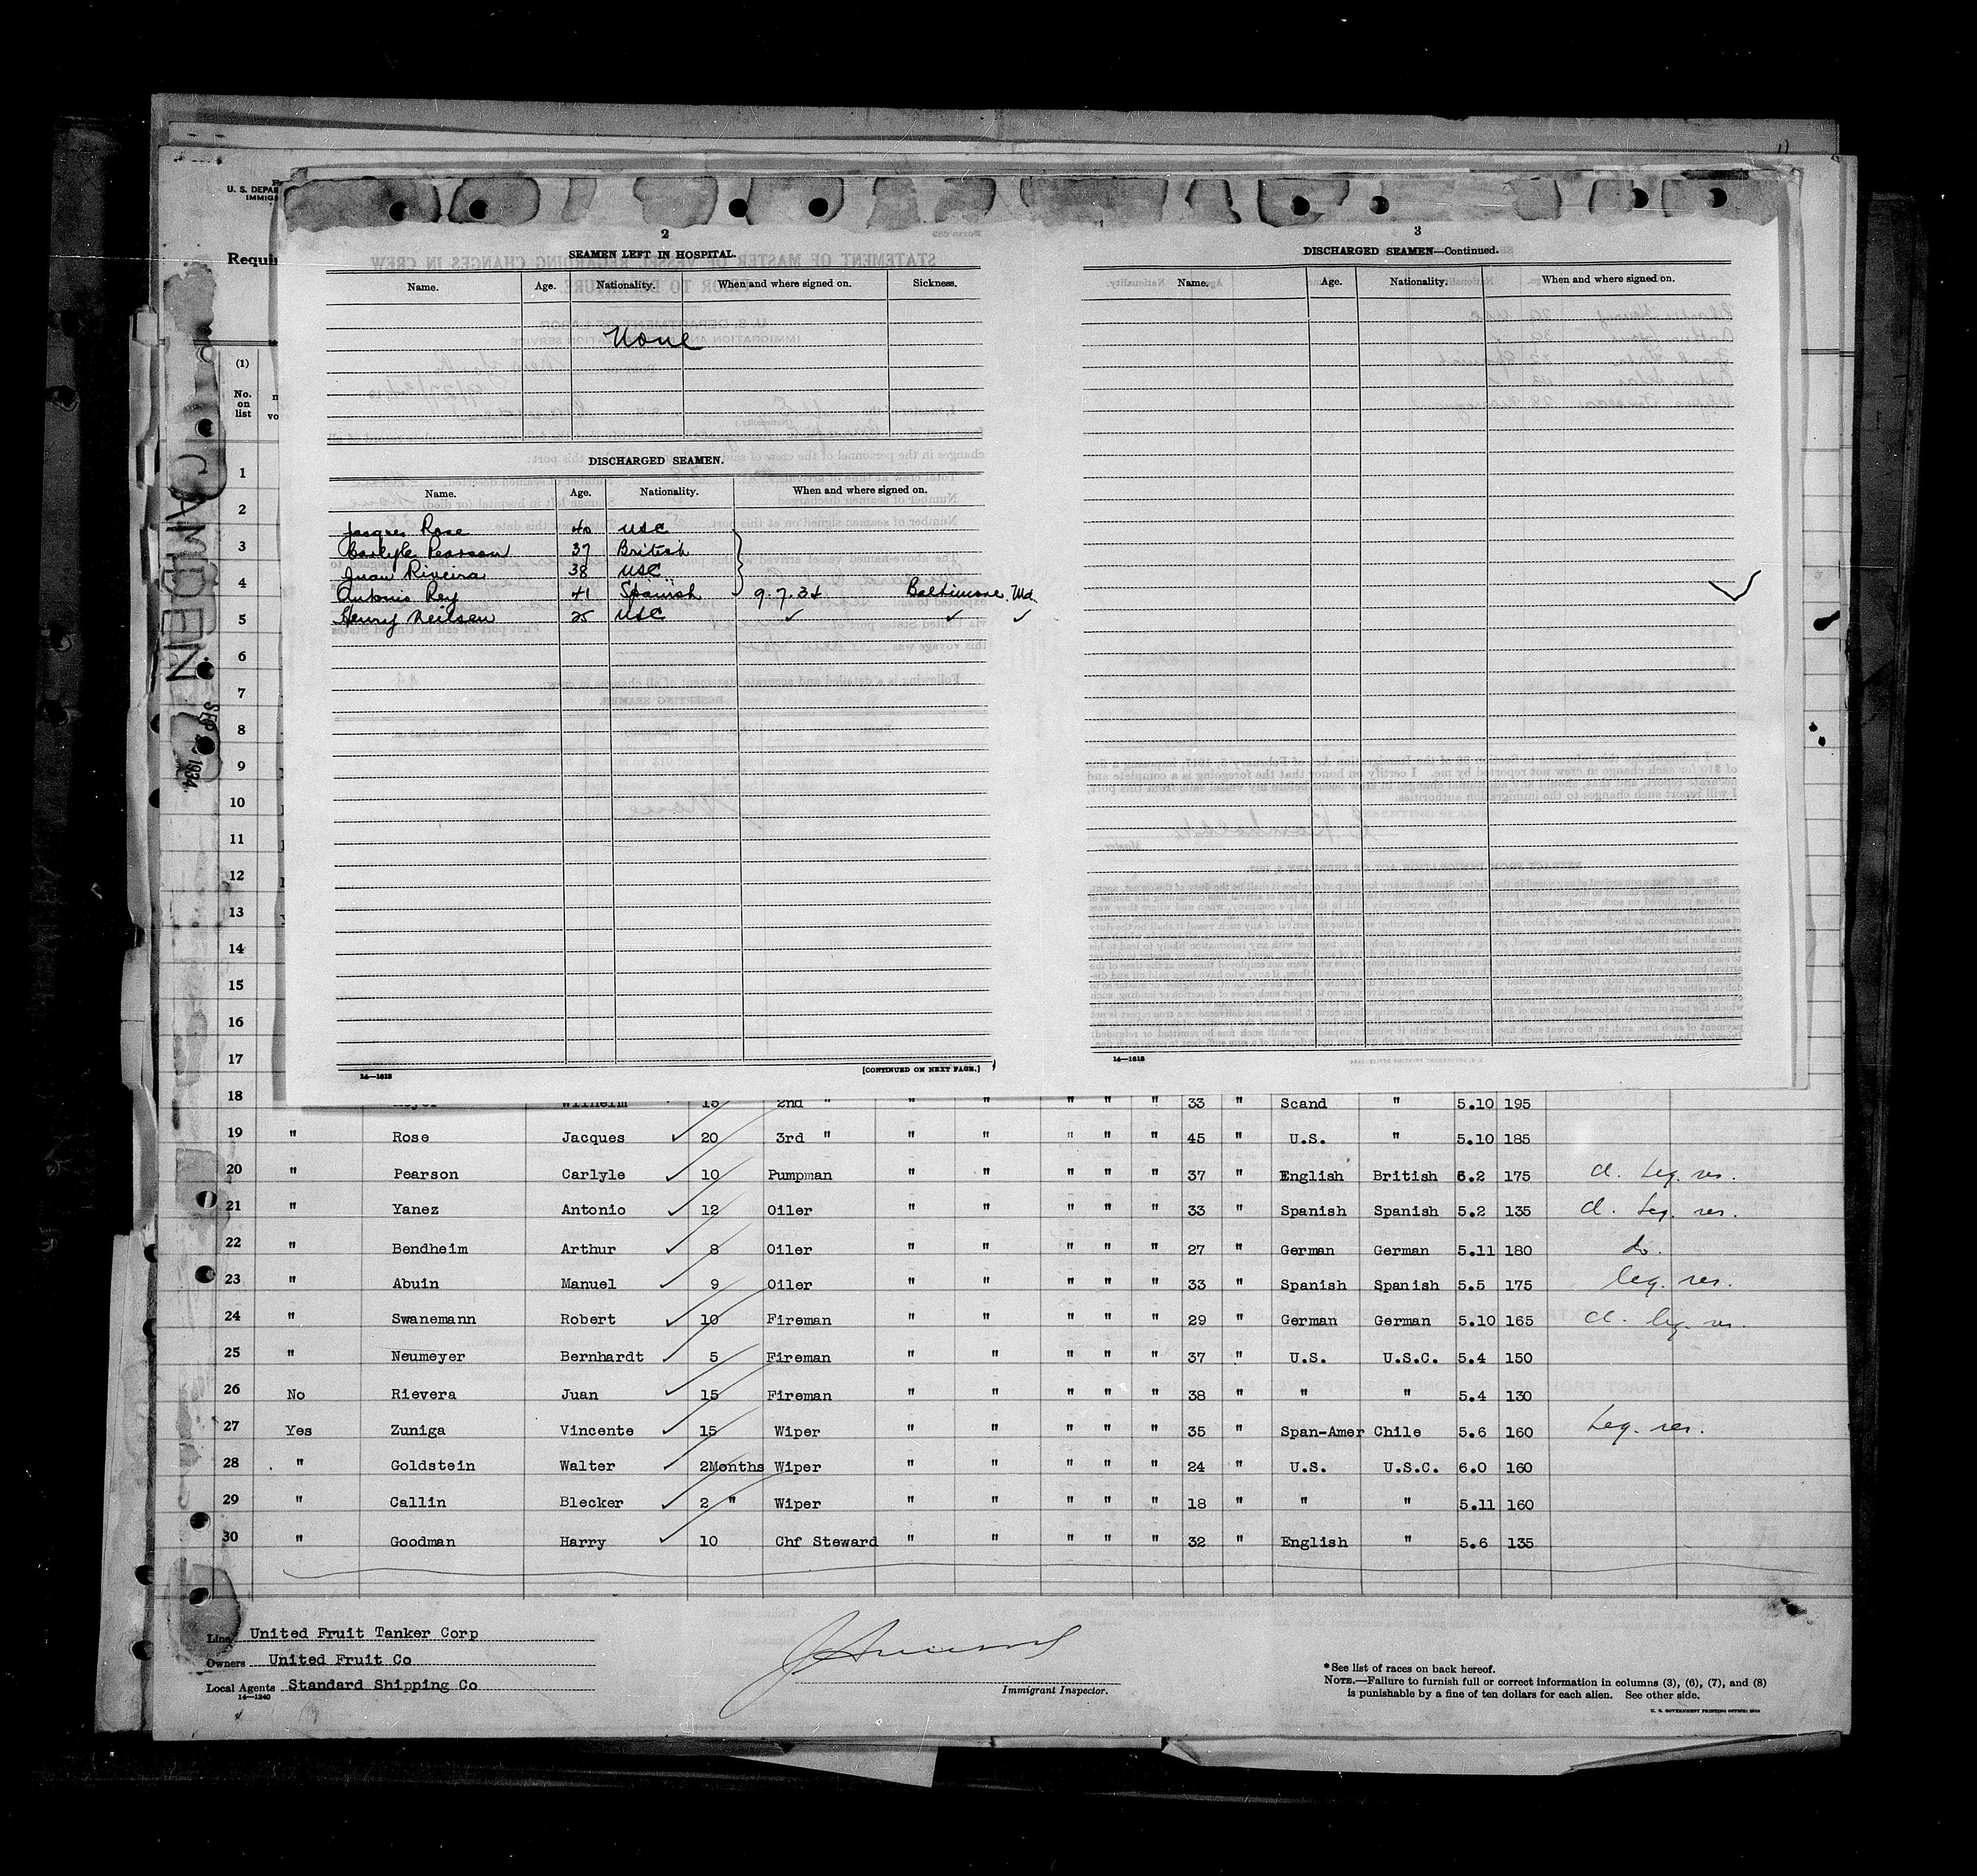 U. S. DEPAR
IMMIG
Requir
(1)
No.
on
list
CAMDEN
SEP 1934
2
SEAMEN LEFT IN HOSPITAL.
Name. Age. Nationality. When and where signed on. Sickness.
None
DISCHARGED SEAMEN.
Name. Age. Nationality. When and where signed on.
Jacques Rose 40 USC
Carlyle Pearson 37 British
Juan Riveira 38 USC
Antonio Rey 41 Spanish 9.7.34 Baltimore, Md.
Henry Neilsen 25 USC ✓ ✓ ✓
14—1613
[CONTINUED ON NEXT PAGE.]
3
DISCHARGED SEAMEN—Continued.
Name. Age. Nationality. When and where signed on.
14—1613
1
2
3
4
5
6
7
8
9
10
11
12
13
14
15
16
17
18 Meyer Wilhelm 15 2nd " " " " " " 33 " Scand " 5.10 195
19 " Rose Jacques ✓ 20 3rd " " " " " " 45 " U.S. " 5.10 185
20 " Pearson Carlyle ✓ 10 Pumpman " " " " " 37 " English British 6.2 175 cl. leg. res.
21 " Yanez Antonio ✓ 12 Oiler " " " " " 33 " Spanish Spanish 5.2 135 cl. leg. res.
22 " Bendheim Arthur ✓ 8 Oiler " " " " " 27 " German German 5.11 180 do.
23 " Abuin Manuel ✓ 9 Oiler " " " " " 33 " Spanish Spanish 5.5 175 leg. res.
24 " Swanemann Robert ✓ 10 Fireman " " " " " 29 " German German 5.10 165 cl. leg. res.
25 " Neumeyer Bernhardt ✓ 5 Fireman " " " " " 37 " U.S. U.S.C. 5.4 150
26 No Rievera Juan ✓ 15 Fireman " " " " " 38 " " " 5.4 130
27 Yes Zuniga Vincente ✓ 15 Wiper " " " " " 35 " Span-Amer Chile 5.6 160 Leg. res.
28 " Goldstein Walter ✓ 2Months Wiper " " " " " 24 " U.S. U.S.C. 6.0 160
29 " Callin Blecker ✓ 2 " Wiper " " " " " 18 " " " 5.11 160
30 " Goodman Harry ✓ 10 Chf Steward " " " " " 32 " English " 5.6 135
Line United Fruit Tanker Corp
Owners United Fruit Co
Local Agents Standard Shipping Co
14—1240
Immigrant Inspector.
*See list of races on back hereof.
NOTE.—Failure to furnish full or correct information in columns (3), (6), (7), and (8)
is punishable by a fine of ten dollars for each alien. See other side.
U. S. GOVERNMENT PRINTING OFFICE: